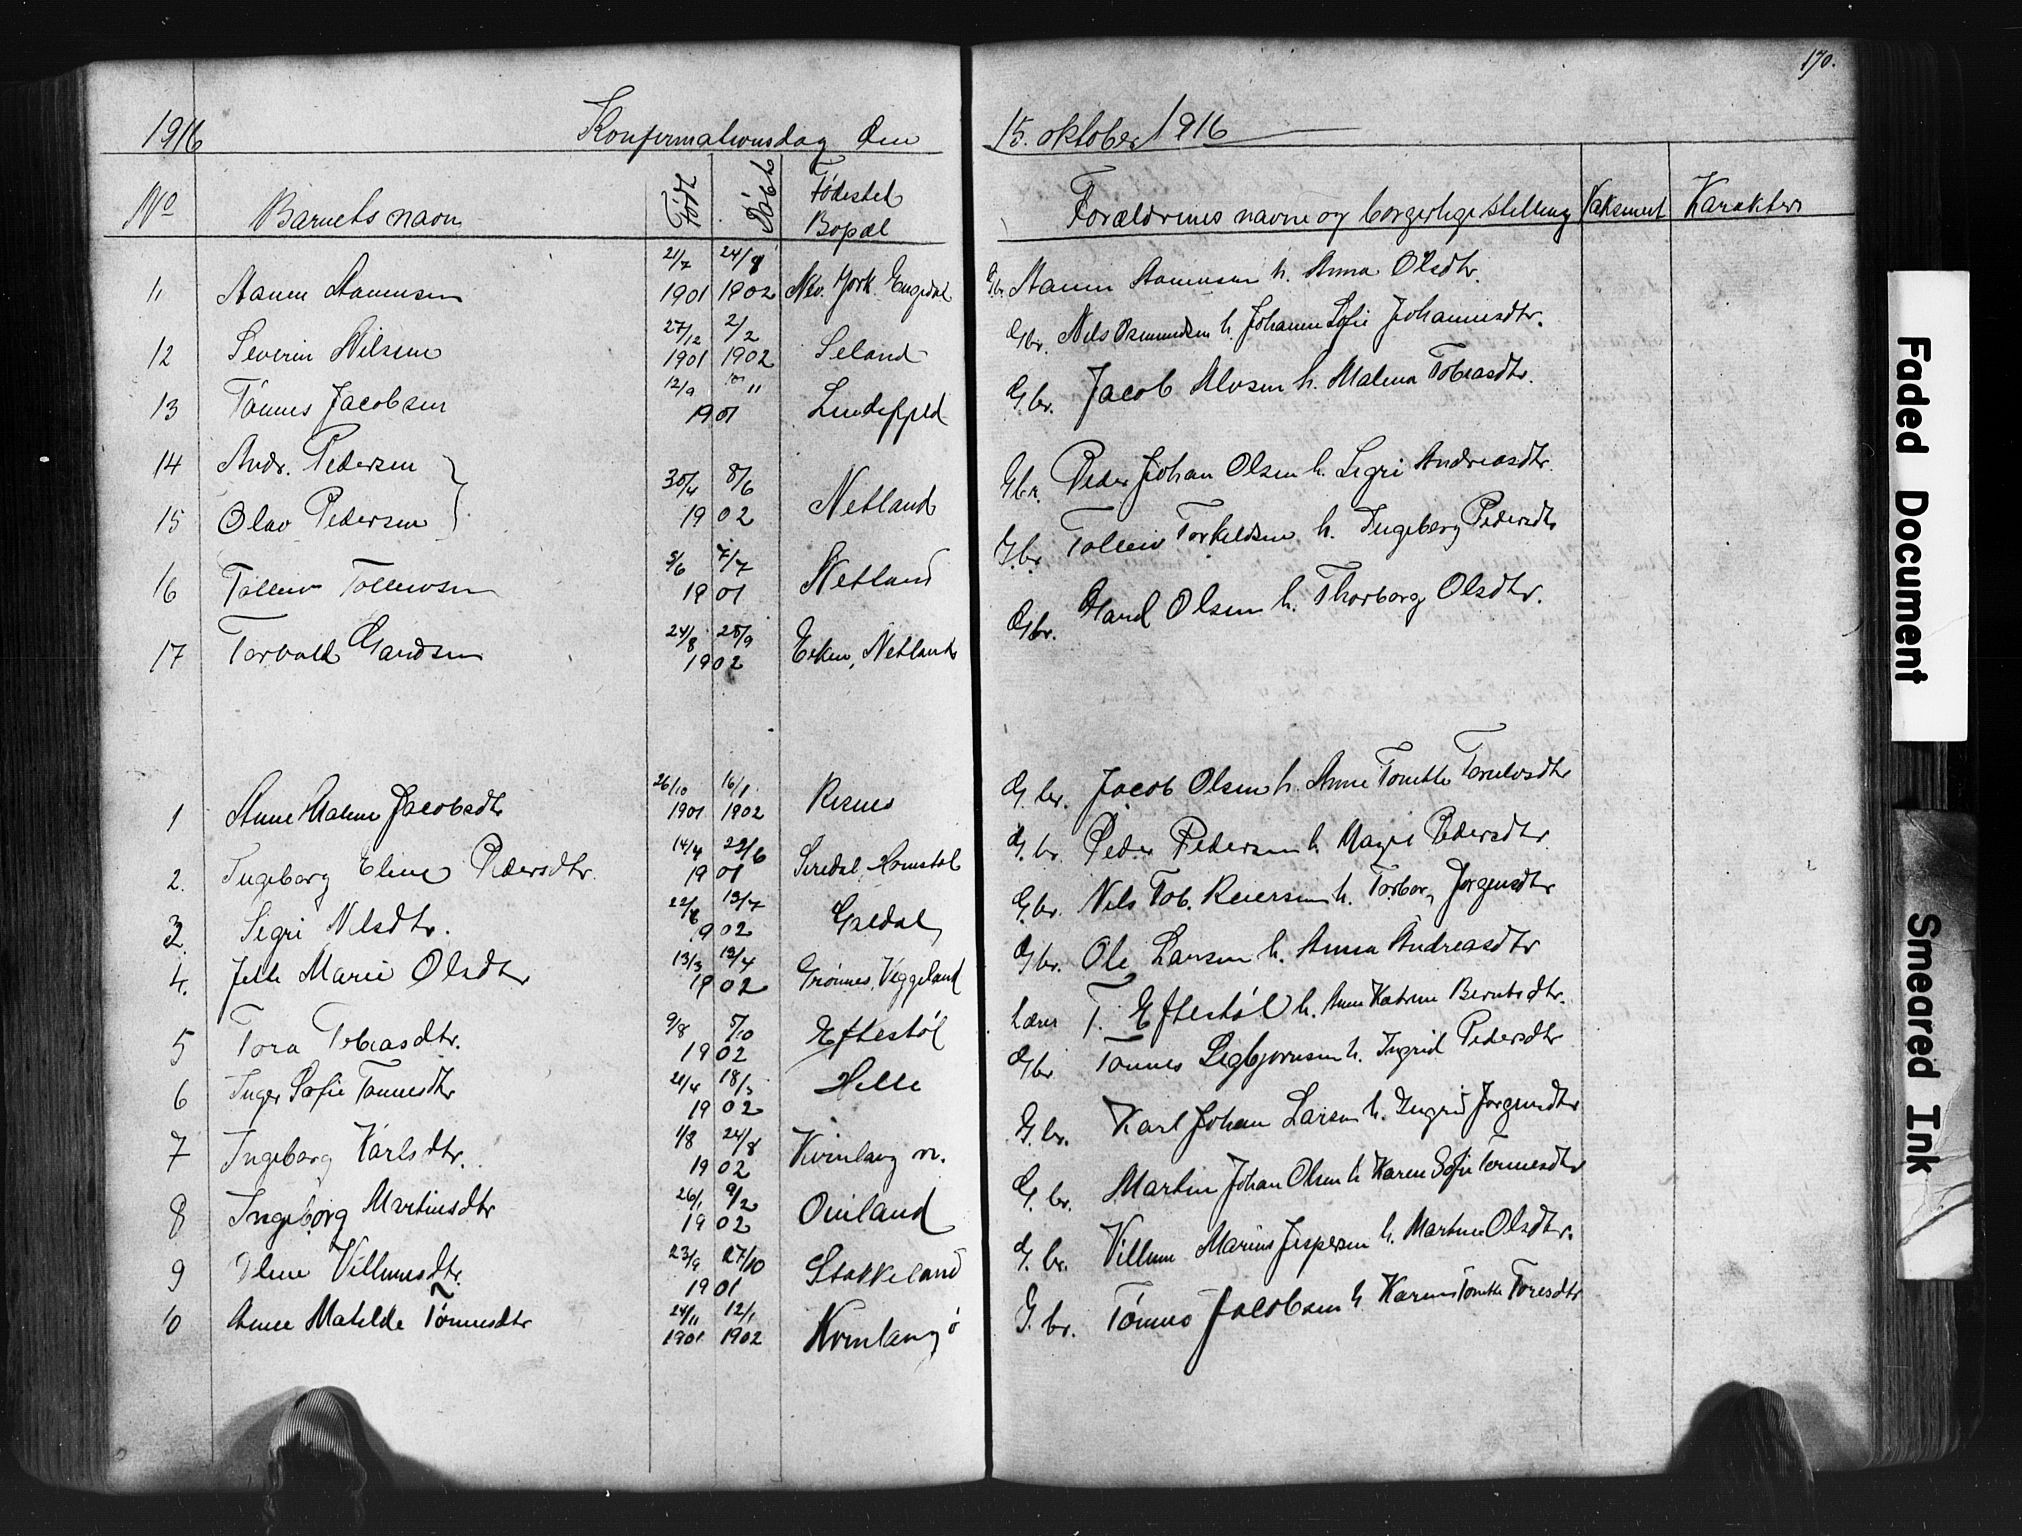 170.
1916 Konfirmationsdag den 15. oktober 1916
No Barnets navn Født Døbt Fødested Bopæl Forældrenes navne og borgerlige stilling Vaksinert Karakter
11 21/7 1901 24/8 1902 New York. Gbr. h. Anna Olsdtr.
12 Severin Nilsen 27/12 1901 2/2 1902 Seland Gbr. Nils Osmundsen h. Johanne Sofie Johannesdtr.
13 Tønnes Jacobsen 12/9 1901 Lindefjeld Gbr. Jacob Alvsen h. Malena Tobiasdtr.
14 Andr. Pedersen }
15 Olav Pedersen } 30/4 8/6 1902 Netland Gbr. Peder Johan Olsen h. Sigri Andreasdtr.
16 Tollew Tollewsen 5/6 7/7 1901 Netland G.br. Tollew Torkeldsen h. Ingeborg Pedersdtr
17 Torvald Gardsen 24/8 28/9 1902 Netland Gbr. Gard Olsen h. Thorborg Olsdtr.
1 Anne Malene Jacobsdtr 26/10 1901 16/1 1902 Risnes G. br. Jacob Olsen h. Anne Tonette
2. Ingeborg Eline Pedersdtr. 14/4 23/6 1901 Siredal, Homstøl G. br. Peder Pedersen h. Pedersdtr.
3 Sigri Nilsdtr. 22/6 13/7 1902 Galdal G.br. Nils Tob. Reiersen h. Torbor, Jørgensdtr
4. Marie Olsdtr 13/3 13/4 1902 Veggeland Gbr. Ole Larsen h. Anna Andreasdtr
5 Tora Tobiasdtr. 9/8 5/10 1902 Eftestøl Lærer T. Eftestøl h. Anne Katrine Berntsdtr.
6 Inger Sofie Tønnesdtr 21/4 18/5 1902 Helle Gbr Tønnes Sigbjørnsen h. Ingrid Pedersdtr
7 Ingeborg Karlsdtr. 1/8 24/8 1902 Kvinlaug n. G. br. Karl Johan Larsen h. Ingrid Jørgensdtr
8 Ingeborg Martinsdtr 26/1 9/2 1902 Omland G. br. Martin Johan Olsen h Karen Sofie Tønnesdtr
9 Villumsdtr. 23/9 27/10 1901 Stakkeland G. br. Villum Marius Jespersen h. Martine Olsdtr.
10 Anne Matilde Tønnesdtr 24/11 1901 12/1 1902 Kvinlaug ø G. br. Tønnes Jacobsen h Karen Tonette Toresdtr
Faded Document
Smeared Ink